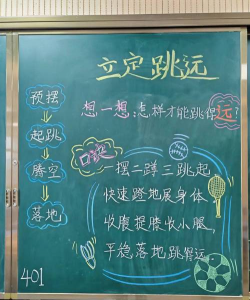 立定跳远
预摆
起跳
腾空
落地
想一想:怎样才能跳得远?
口诀
一摆二蹲三跳起
快速蹬地展身体
收腹提膝收小腿,
平稳落地跳得远
401